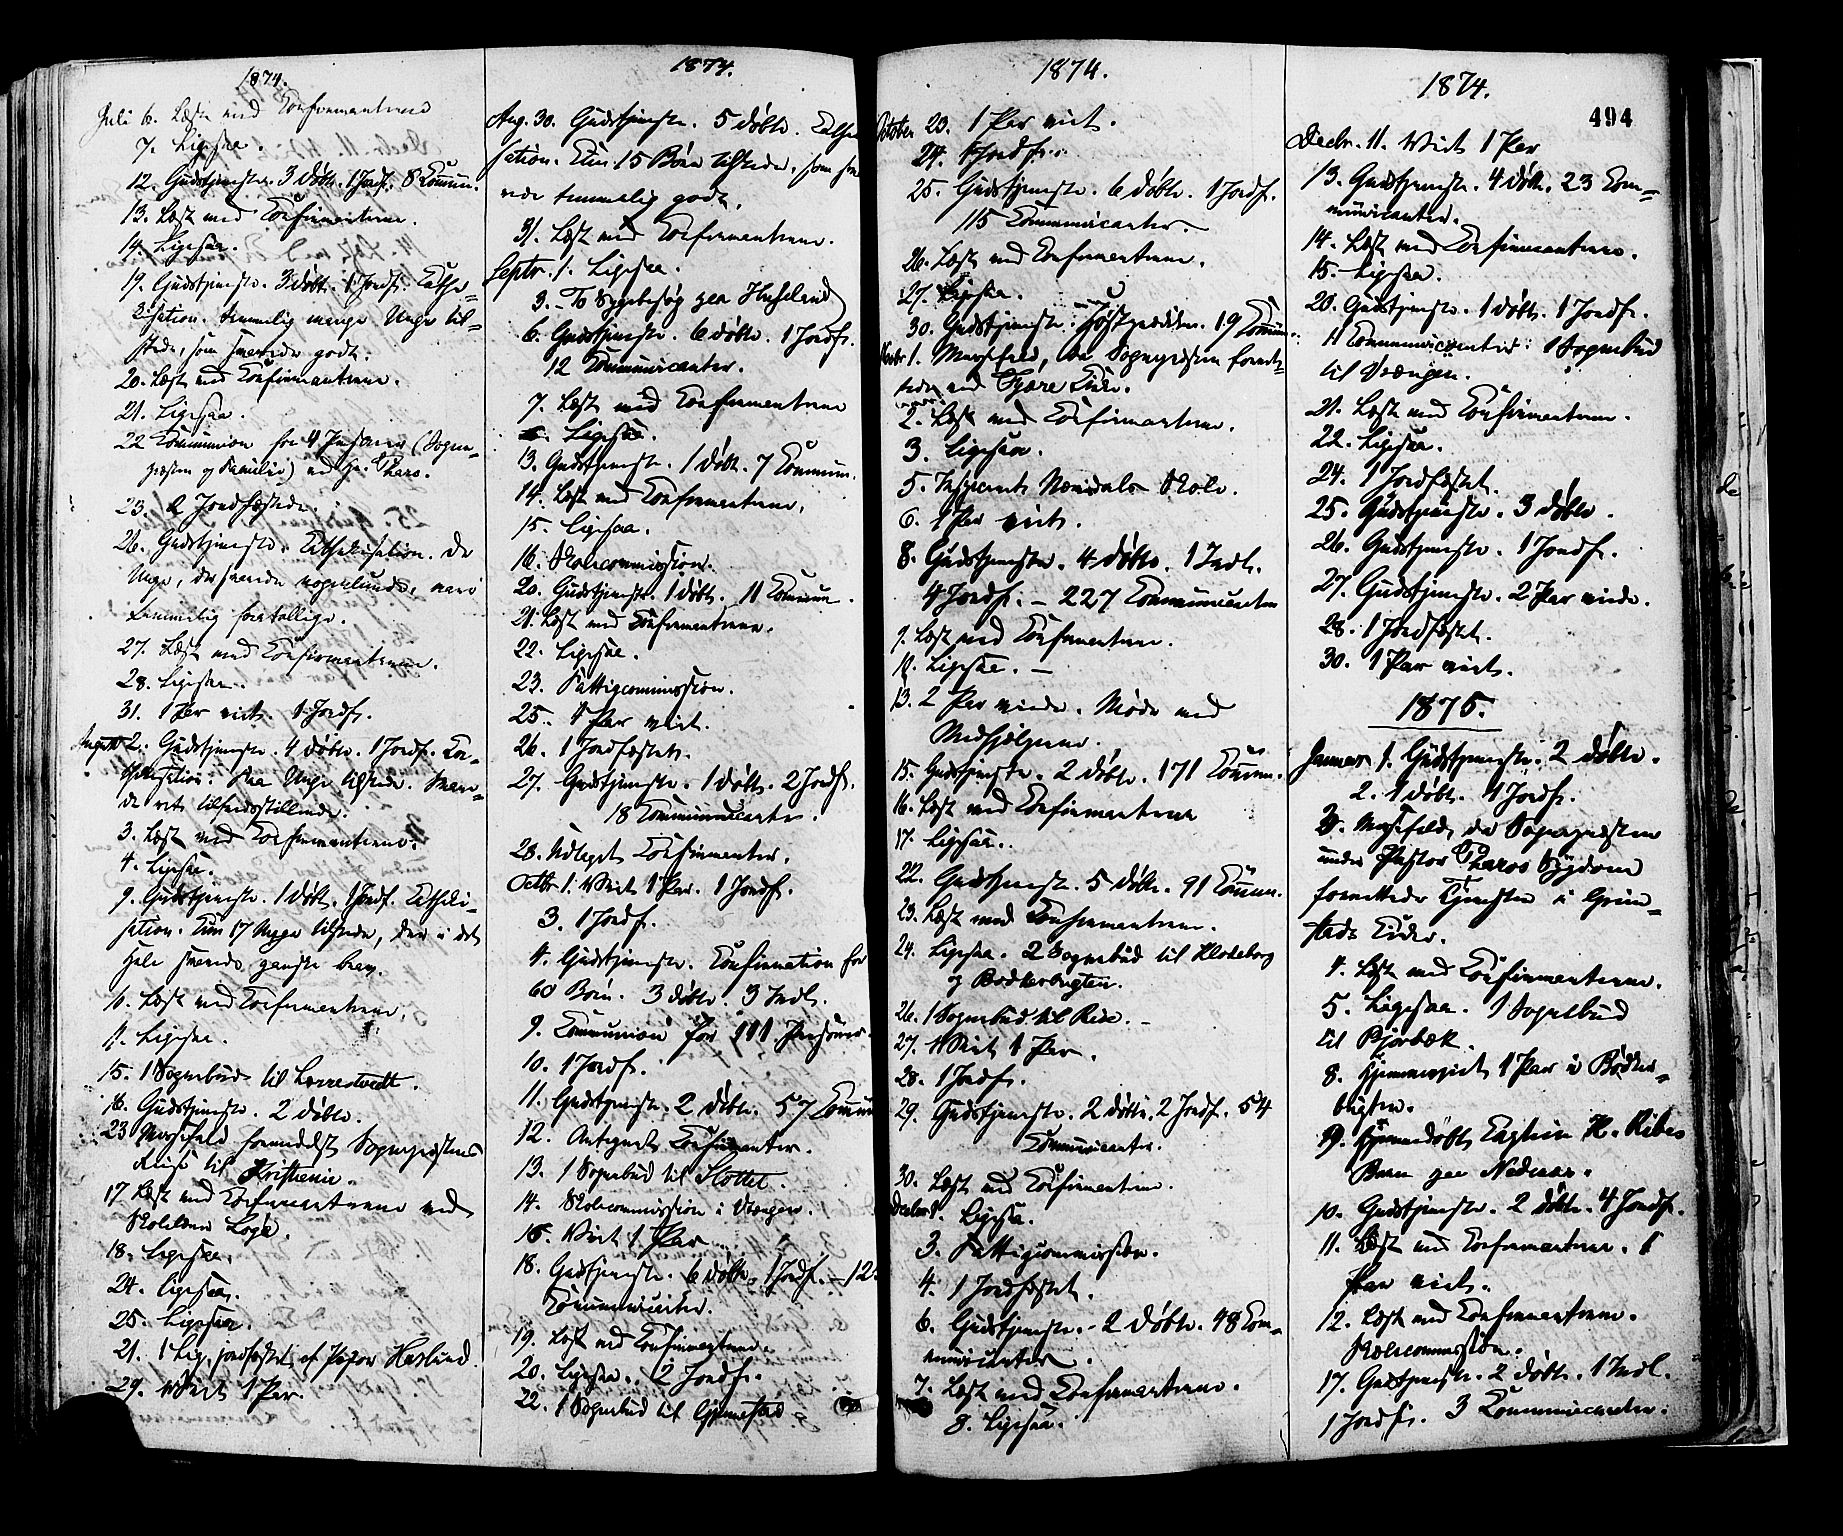 1874.
Juli 6. Læst med Confirmanterne
7. Ligesaa.
12. Gudstjeneste. 3 døbte. 1 Jordf. 8 Commun.
13. Læst med Confirmanterne.
14. Ligesaa.
19. Gudstjeneste. 3 døbte. 1 Jordf. Cathe-
sation. temmelig mange Unge til-
stede, som svarede godt.
20. Læst med Confirmanterne.
21. Ligesaa.
22 Communion for 4 Personer (Sogne-
præsten og Familie) ved Hr. Tharo.
23. 2 Jordfæstede.
26. Gudstjeneste. Cathekisation. De
Unge, der svarede nogenlunde, vare
temmelig faatallige.
27. Læst med Confirmanterne.
28. Ligesaa.
31. 1 Par viet. 1 Jordf.
August 2. Gudstjeneste. 4 døbte. 1 Jordf. Ca-
thekisation. Faa Unge tilstede. Svare-
de ret tilfredsstillende.
3. Læst med Confirmanterne.
4. Ligesaa.
9. Gudstjeneste. 1 døbt. 1 Jordf. Catheki-
sation. Kun 17 Unge tilstede, der i det
Hele svarede ganske brav.
10. Læst med Confirmanterne.
11. Ligesaa.
15. 1 Sognebud til Lorrestvedt.
16. Gudstjeneste. 2 døbte.
23 Messefald formedelst Sognepræstens
Reise til Kristiania.
17. Læst med Confirmanterne ved
Skolelærer Loge.
18. Ligesaa.
24. Ligesaa.
25. Ligesaa.
21. 1 Lig jordfæstet af Pastor Haslund.
29. Viet 1 Par.
1874.
Aug. 30. Gudstjeneste. 5 døbte. Cathe
sation. Kun 15 Børn tilstede, som sva
rede temmelig godt.
31. Læst med Confirmanterne.
Septr. 1. Ligesaa.
3. To Sygebesøg paa
6. Gudstjeneste. 6 døbte. 1 Jordf.
12 Communicanter.
7. Læst med Confirmanterne
8. Ligesaa.
13. Gudstjeneste. 1 døbt. 7 Commun.
14. Læst med Confirmanterne.
15. Ligesaa.
16. Skolecommission.
20. Gudstjeneste. 1 døbt. 11 Commun.
21. Læst med Confirmanterne.
22. Ligesaa.
23. Fattigcommission.
25. 1 Par viet.
26. 1 Jordfæstet.
27. Gudstjeneste. 1 døbt. 2 Jordf.
18 Communicanter.
28. Udleget Confirmanter.
Octbr. 1. Viet 1 Par. 1 Jordf.
3. 1 Jordf.
4. Gudstjeneste. Confirmation for
60 Børn. 3 døbte. 3 Indl.
9. Communion for 111 Personer.
10. 1 Jordf.
11. Gudstjeneste. 2 døbte. 57 Commun
12. Antegnet Confirmanter.
13. 1 Sognebud til Slottet.
14. Skolecommission i Vrengen.
16. Viet 1 Par
18. Gudstjeneste. 6 døbte. 1 Jordf. - 12
Communicanter.
19. Læst med Confirmanterne.
20. Ligesaa. 2 Jordf.
22. 1 Sognebud til Gjennestad
1874.
October 23. 1 Par viet.
24. 1 Jordf.
25. Gudstjeneste. 6 døbte. 1 Jordf.
115 Communicanter.
26. Læst med Confirmanterne.
27. Ligesaa.
30. Gudstjeneste. Høstprædiken. 19 Commun.
Novbr 1. Messefald, da Sognepræsten forret-
tede ved Fjære Kirke.
2. Læst med Confirmanterne.
3. Ligesaa.
5. Inspiceret Nævidals Skole.
6. 1 Par viet.
8. Gudstjeneste. 4 døbte. 1 Indl.
4 Jordf. - 227 Communicanter
9. Læst med Confirmanterne.
11. Ligesaa. -
13. 2 Par viede. Møde med
Medhjælperne.
15. Gudstjeneste. 2 døbte. 171 Commun.
16. Læst med Confirmanterne
17. Ligesaa.
22. Gudstjeneste. 5 døbte. 91 Commun.
23. Læst med Confirmanterne.
24. Ligesaa. 2 Sognebud til Klodeborg
og Bødkerbugten.
26. 1 Sognebud til Rise. -
27. Viet 1 Par.
28. 1 Jordf.
29. Gudstjeneste. 2 døbte. 2 Jordf. 54
Communicanter.
30. Læst med Confirmanterne.
Decbr 1. Ligesaa.
3. Fattigcommission.
4. 1 Jordfæstet.
6. Gudstjeneste. - 2 døbte. 48 Com-
municanter.
7. Læst med Confirmanterne.
8. Ligesaa.
1874.
494
Decbr. 11. Viet 1 Par
13. Gudstjeneste. 4 døbte. 23 Com-
municanter.
14. Læst med Confirmanterne.
15. Ligesaa.
20. Gudstjeneste. 1 døbt. 1 Jordf.
11 Communicanter. 1 Sognebud
til Vrængen.
21. Læst med Confirmanterne.
22. Ligesaa.
24. 1 Jordfæstet.
25. Gudstjeneste. 3 døbte.
26. Gudstjeneste. 1 Jordf.
27. Gudstjeneste. 2 Par viede.
28. 1 Jordfæstet.
30. 1 Par viet.
1875.
Januar 1. Gudstjeneste. 2 døbte.
2. 1 døbt. 1 Jordf.
3. Messefald, da Sognepræsten
under Pastor Tharos Sygdom
forrettede Tjenesten i Grim-
stads Kirke.
4. Læst med Confirmanterne.
5. Ligesaa. 1 Sognebud
til Bjørbæk.
8. Hjemmeviet 1 Par i Bødker-
bugten.
9. Hjemmedøbt Captein H. Ribes
Barn paa Nedenæs.
10. Gudstjeneste. 2 døbte. 4 Jordf.
11. Læst med Confirmanterne. 1
Par viet.
12. Læst med Confirmanterne.
Skolecommission.
17. Gudstjeneste. 2 døbte. 1 Indl.
1 Jordf. 3 Communicanter.